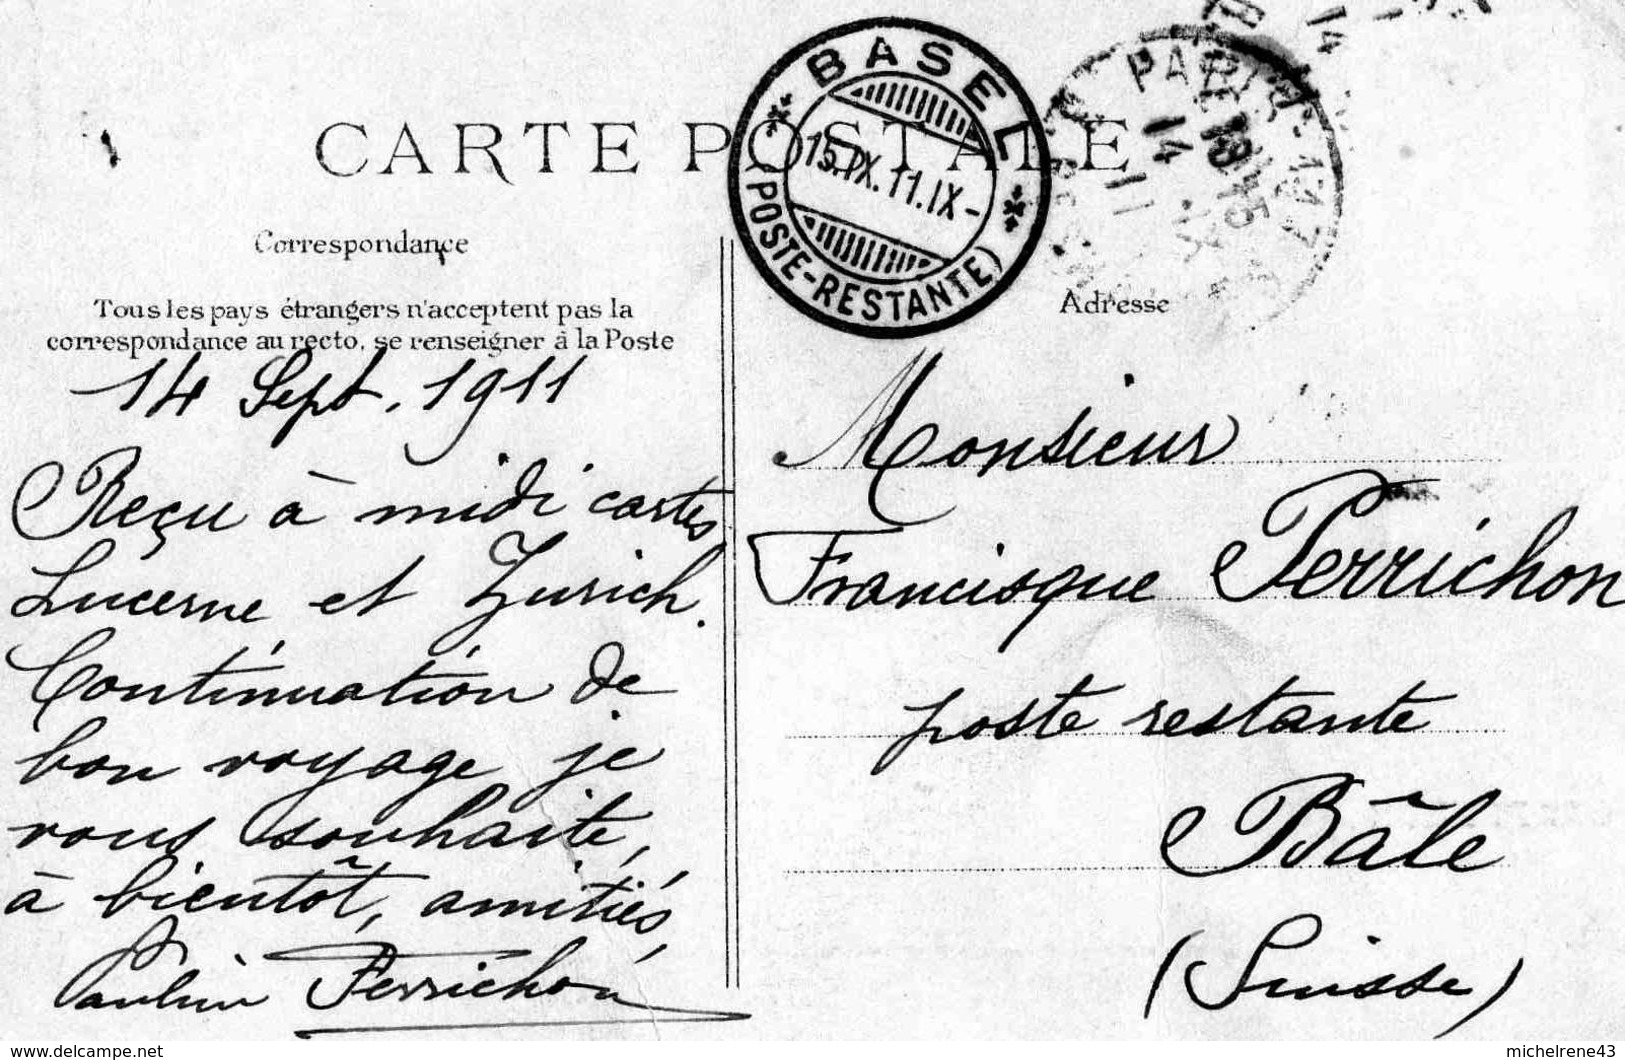 CARTE POSTALE
BASEL
15.IX.11.IX-
(POSTE-RESTANTE)
PARIS
14
Correspondance
Tous les pays étrangers n'acceptent pas la
correspondance au recto, se renseigner à la Poste
14 Sept. 1911
Reçu à midi cartes
Lucerne et Zurich.
Continuation de
bon voyage je
vous souhaite,
à bientôt, amitiés,
Perrichon
Adresse
Monsieur
Francisque Perrichon
poste restante
Bâle
(Suisse)
www.delcampe.net
michelrene43